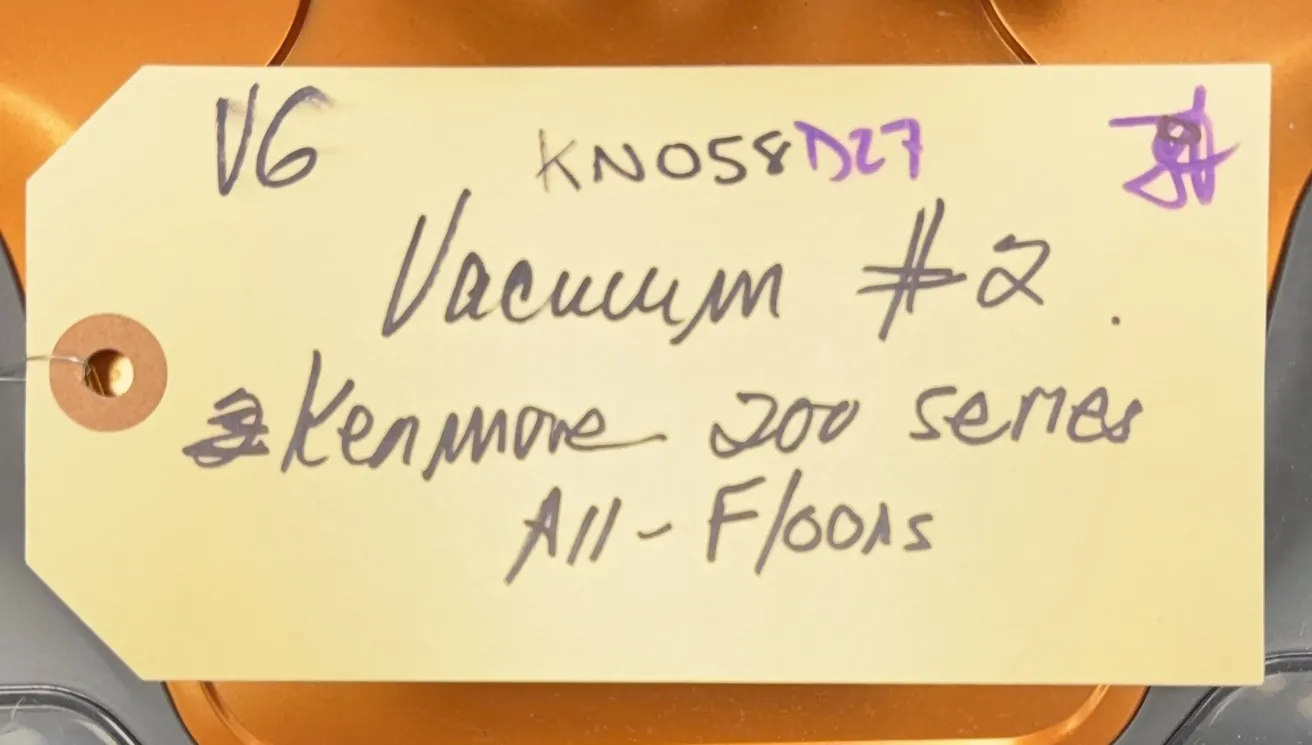 V6 KN058D27
Vacuum #2
Kenmore 200 series
All-Floors